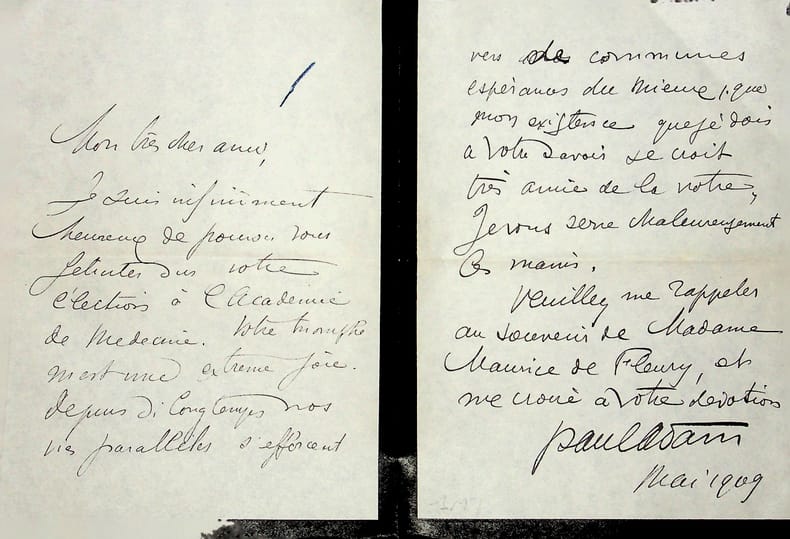 Mon très cher ami,
Je suis infiniment
heureux de pouvoir vous
féliciter dus votre
élections à l'Academie
de Medecine. Votre triomphe
m'est une extreme joie.
Depuis si longtemps nos
vies parallèles s'efforcent
vers de communes
espérances du mieux, que
mon existence que je dois
à votre savoir se croit
très amie de la votre,
Je vous serre chaleureusement
les mains.
Veuillez me rappeler
au souvenir de Madame
Maurice de Fleury, et
me croire à votre devotion
Paul Adam
Mai 1909